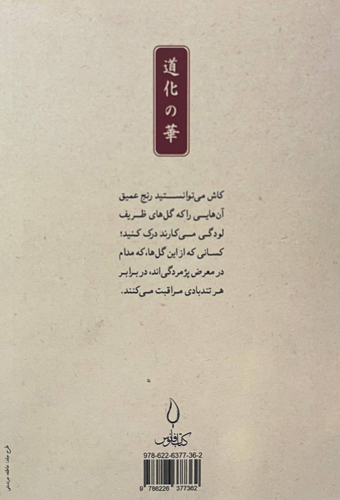 道化の華
کاش می‌توانستید رنج عمیق
آن‌هایی را که گل‌های ظریف
لودگی می‌کارند درک کنید؛
کسانی که از این گل‌ها، که مدام
در معرض پژمردگی‌اند، در برابر
هر تندبادی مراقبت می‌کنند.
کتاب فانوس
978-622-6377-36-2
9 786226 377362